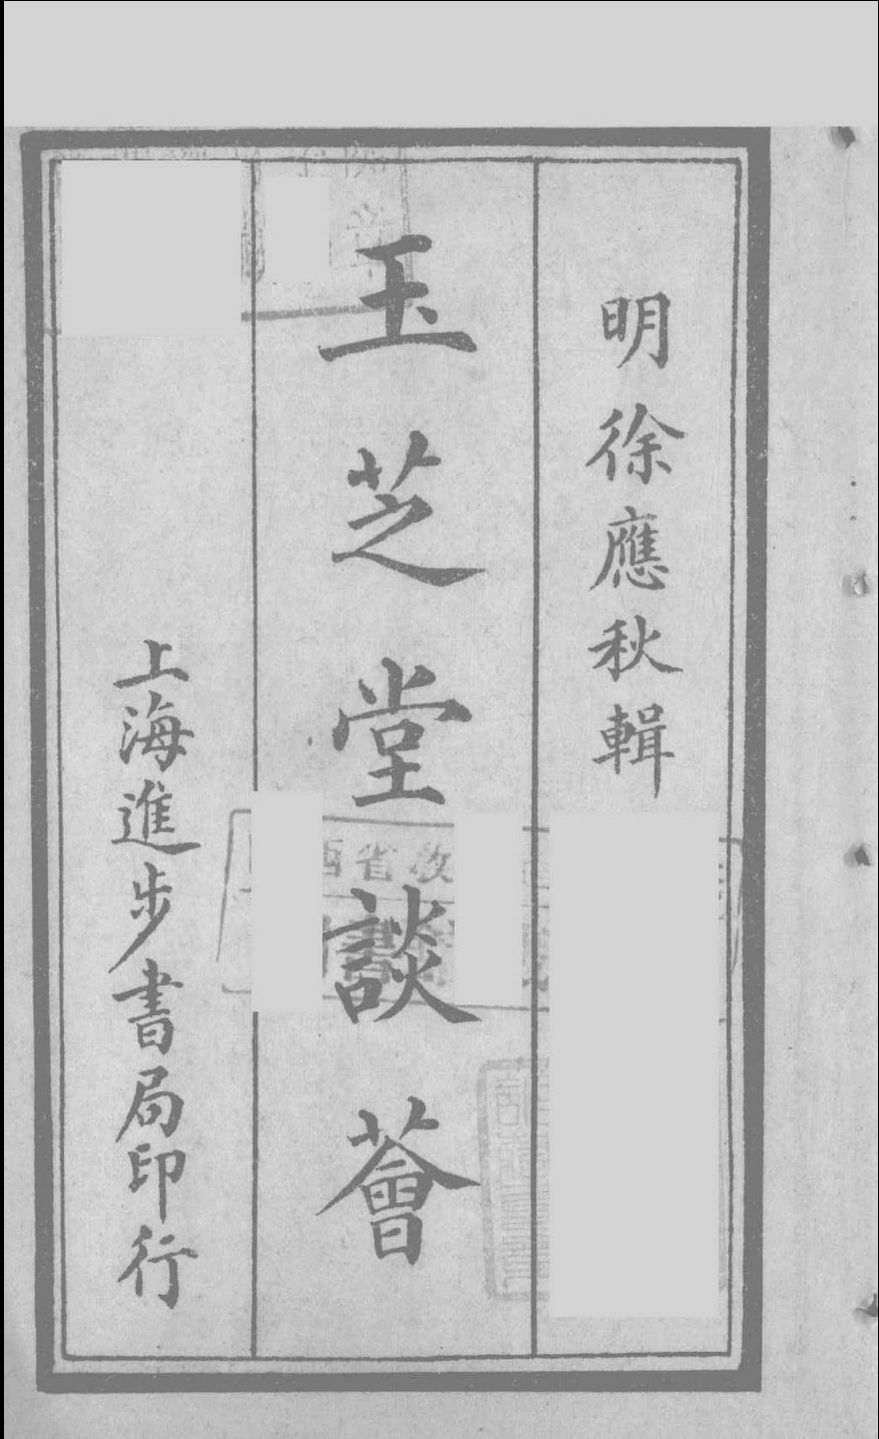 明徐應秋輯
玉芝堂談薈
上海進步書局印行